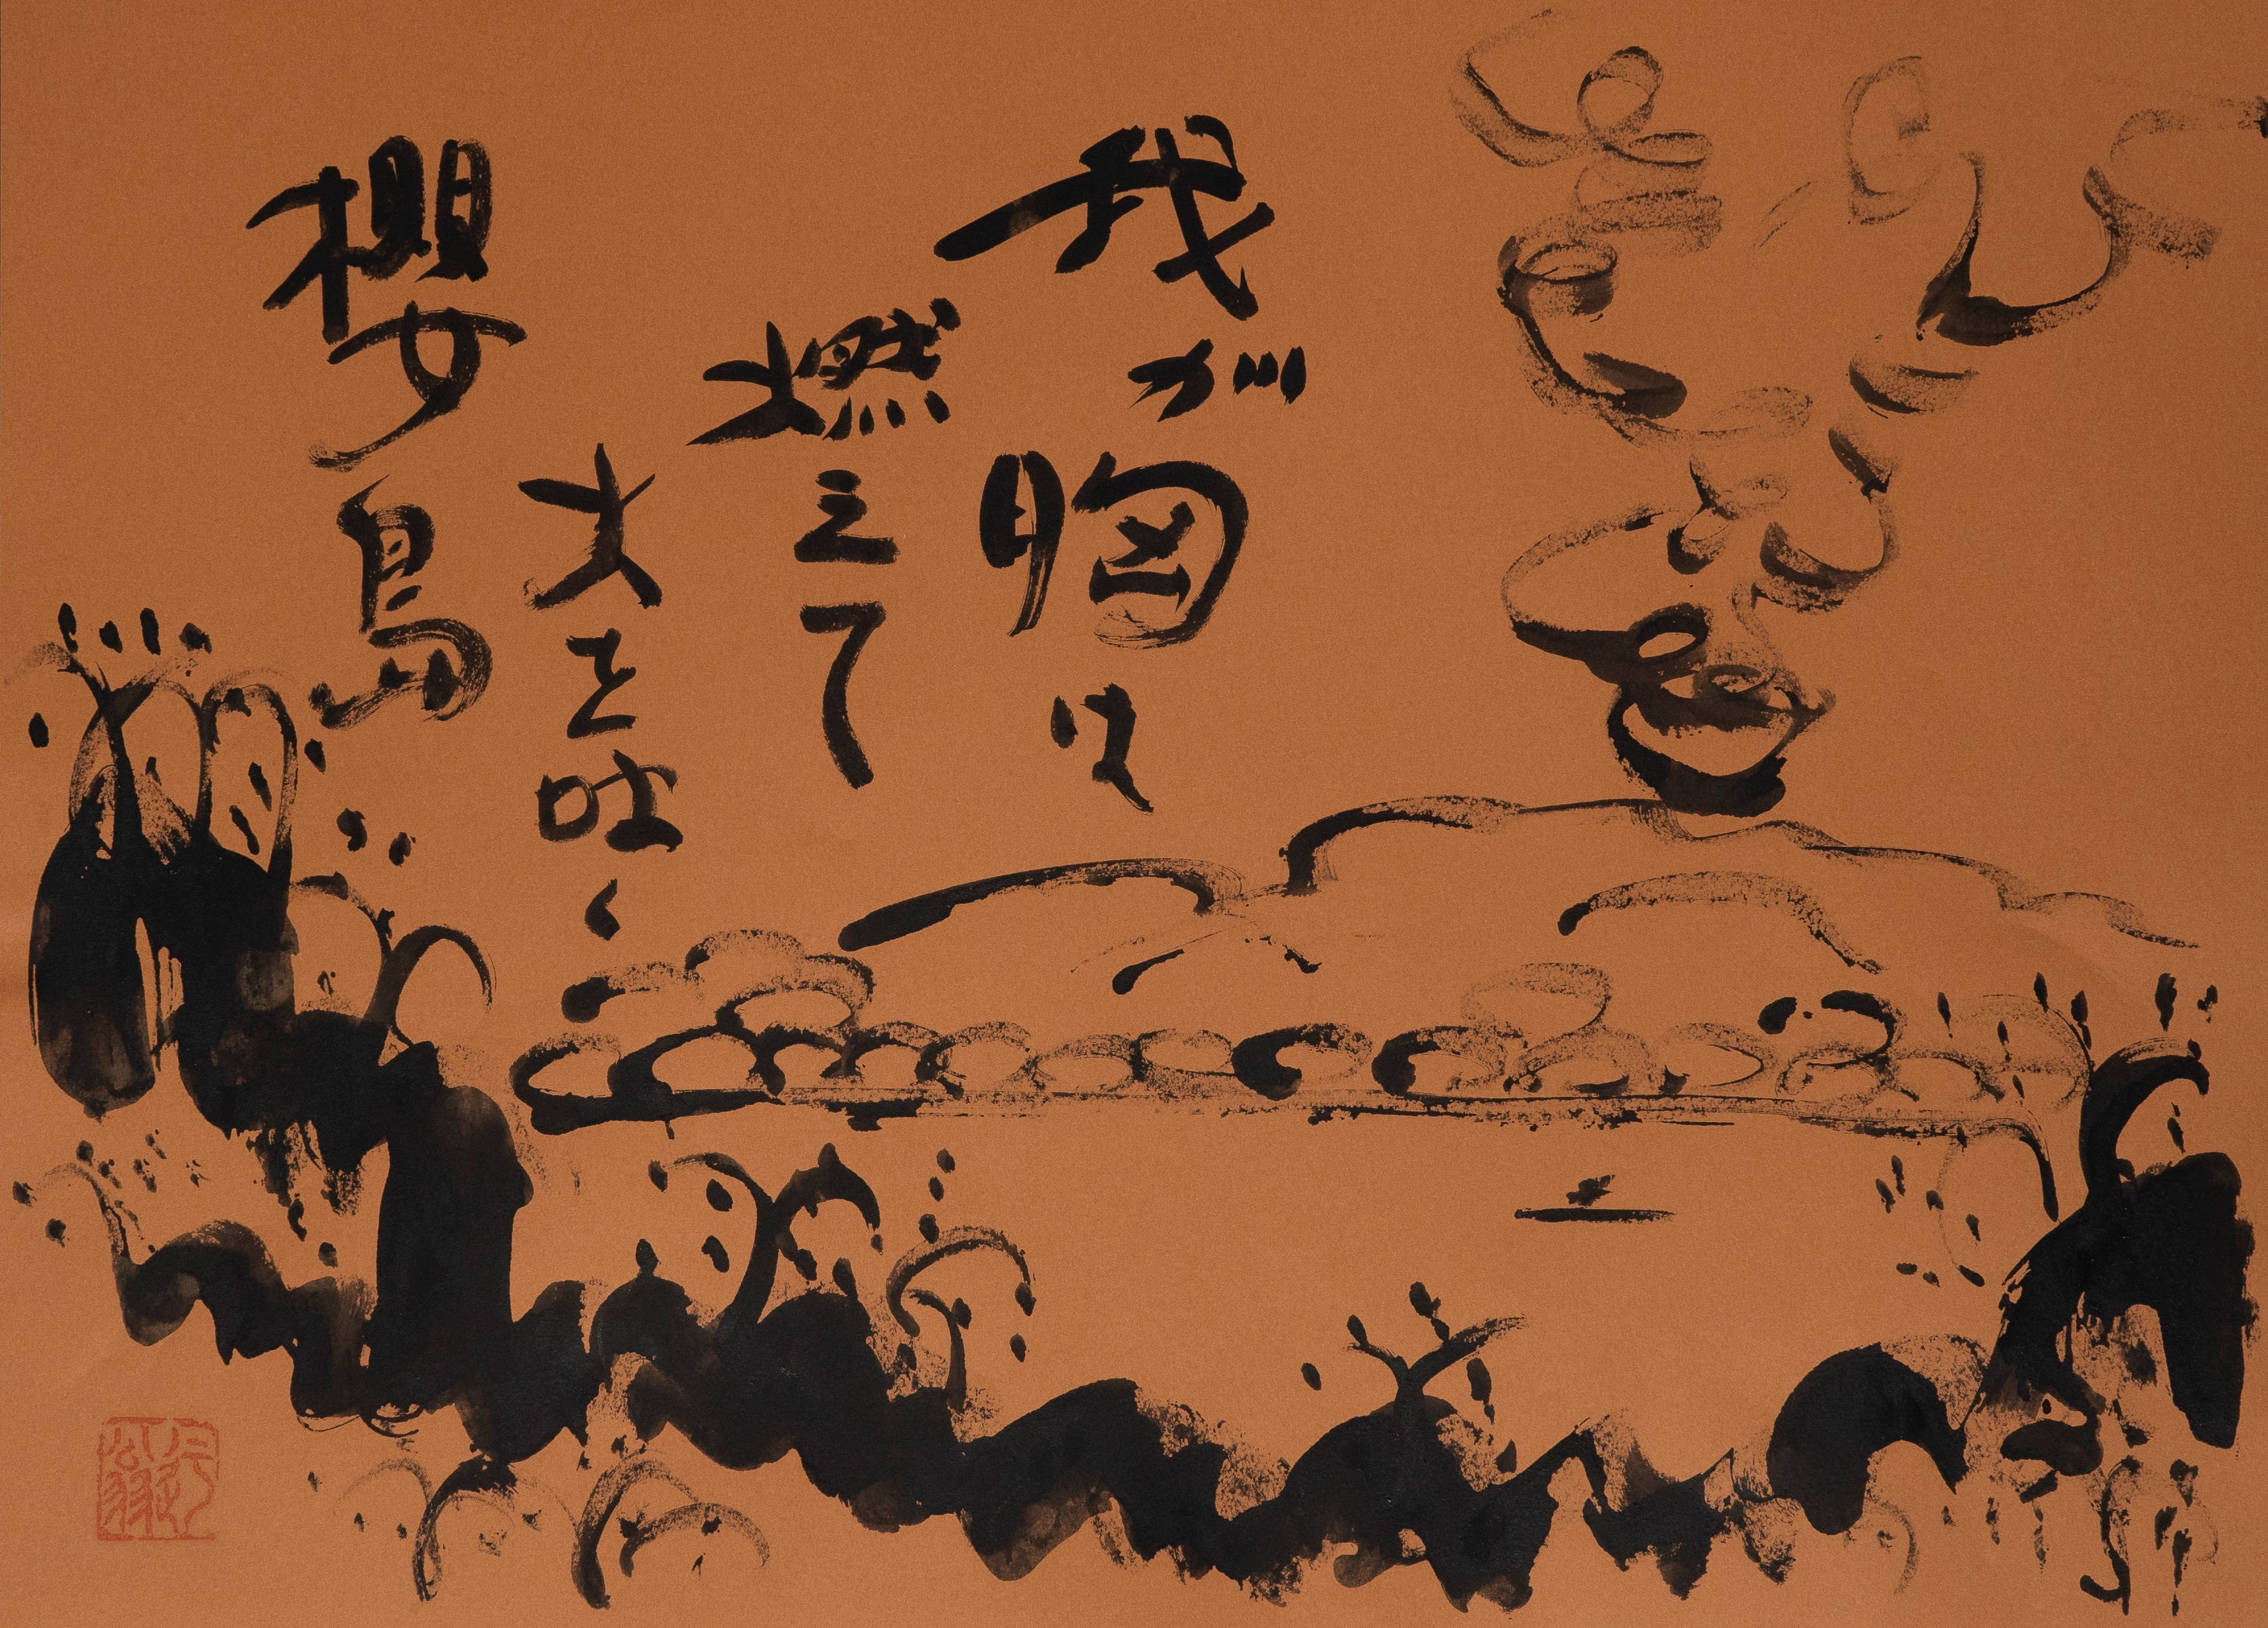 我が胸に
燃えて
火を吐く
櫻島